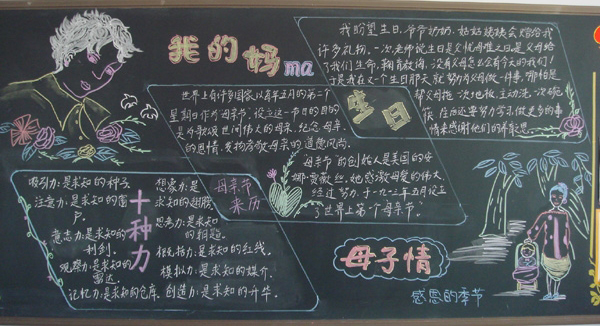 我的妈ma
我盼望生日,爷爷奶奶、姑姑姨姨会赠给我
许多礼物,一次,老师说生日是父忧母难之日是父母给
了我们生命,哺育教诲,没有父母怎么会有今天的我们!
于是我在又一个生日那天就努力为父母做一件事,哪怕是
帮父母拖一次地板,主动洗一次碗
筷,在以后还要努力学习做更多的事
情来感谢他们的养育之恩。
生日
世界上有许多国家以每年五月的第二个
星期日作为母亲节。设立这一节日的目的
是为歌颂世间伟大的母亲,纪念母亲
的恩情,发扬孝敬母亲的道德风尚。
母亲节的创始人是美国的安
娜·贾薇丝,她感激母爱的伟大,
经过努力,于一九一三年五月设立
了世界上第一个母亲节。
母亲节
来历
十种力
吸引力:是求知的种子
注意力:是求知的窗
户
意志力:是求知的
利剑。
观察力:是求知的
雷达。
记忆力:是求知的仓库。
想象力:是
求知的翅膀
思考力:是求知
的钥匙。
模拟力:是求知的媒介。
创造力:是求知的升华。
母子情
感恩的季节